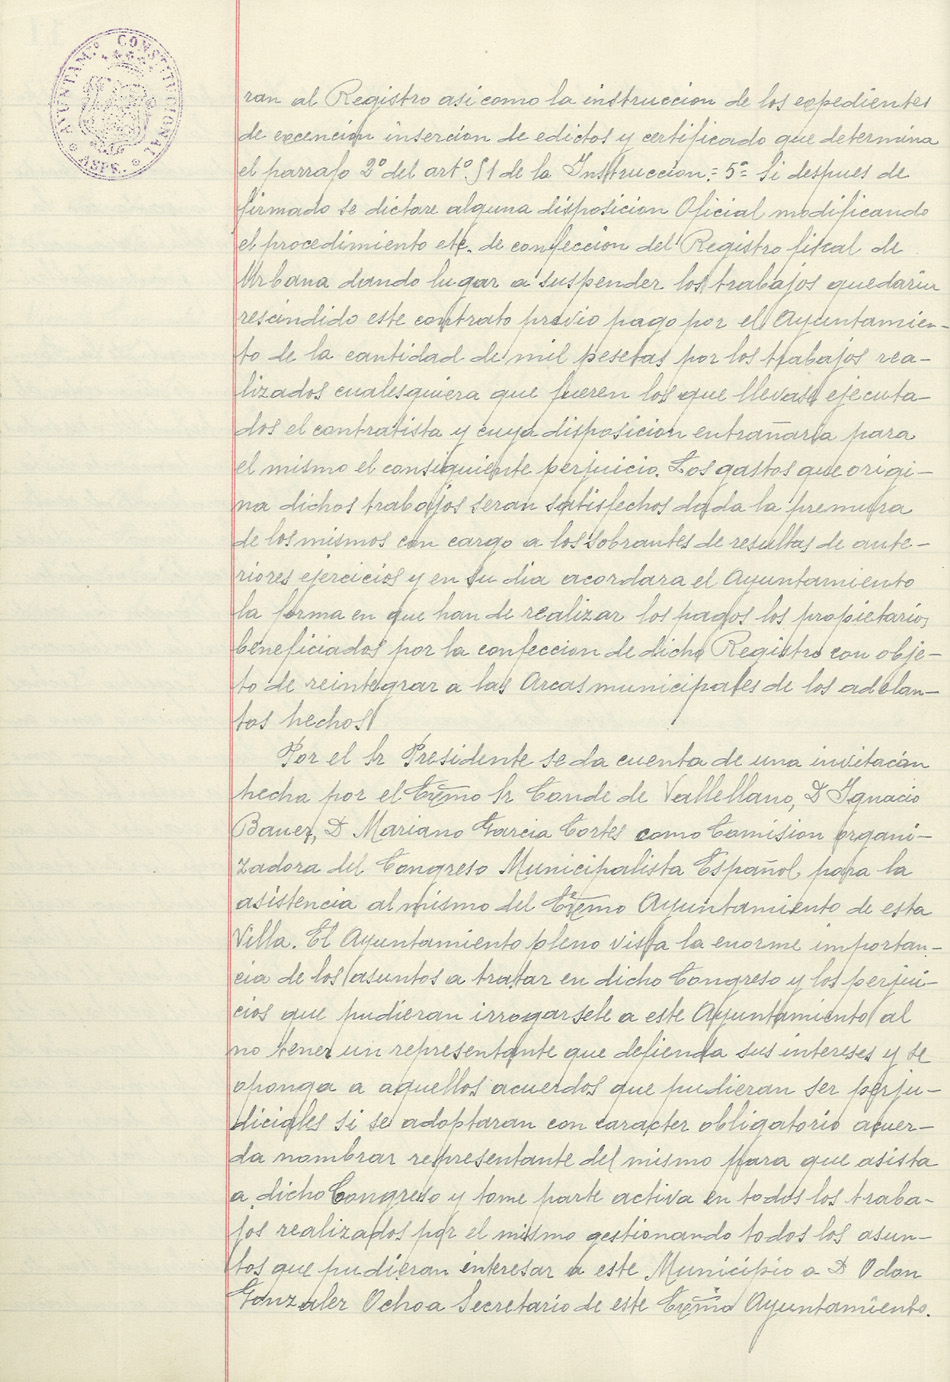 AYUNTAM.º CONSTITUCIONAL
ASPE.
ran al Registro asi como la instruccion de los expedientes
de excención inserción de edictos y certificado que determina
el parrafo 2º del artº. 51 de la Instruccion.= 5º= Si despues de
firmado se dictare alguna disposicion Oficial modificando
el procedimiento etc. de confeccion del Registro fiscal de
Urbana dando lugar a suspender los trabajos quedaria
rescindido este contrato previo pago por el Ayuntamien-
to de la cantidad de mil pesetas por los trabajos rea-
lizados cualesquiera que fueren los que llevase ejecuta-
dos el contratista y cuya disposicion entrañaria para
el mismo el consiguiente perjuicio. Los gastos que origi-
na dichos trabajos seran satisfechos dada la premura
de los mismos con cargo a los sobrantes de resultas de ante-
riores ejercicios y en su dia acordara el Ayuntamiento
la forma en que han de realizar los pagos los propietarios
beneficiados por la confeccion de dicho Registro con obje-
to de reintegrar a las Arcas municipales de los adelan-
tos hechos
Por el Sr Presidente se da cuenta de una invitacón
hecha por el Excmo Sr Conde de Vallellano, D Ignacio
Bauer, D Mariano Garcia Cortes como Comision organi-
zadora del Congreso Municipalista Español para la
asistencia al mismo del Excmo Ayuntamiento de esta
Villa. El Ayuntamiento pleno vista la enorme importan-
cia de los asuntos a tratar en dicho Congreso y los perjui-
cios que pudieran irrogarsele a este Ayuntamiento al
no tener un representante que defienda sus intereses y se
oponga a aquellos acuerdos que pudieran ser perju-
diciales si se adoptaran con caracter obligatorio acuer-
da nombrar representante del mismo para que asista
a dicho Congreso y tome parte activa en todos los traba-
jos realizados por el mismo gestionando todos los asun-
tos que pudieran interesar a este Municipio a D Odon
Gonzalez Ochoa Secretario de este Excmo Ayuntamiento.